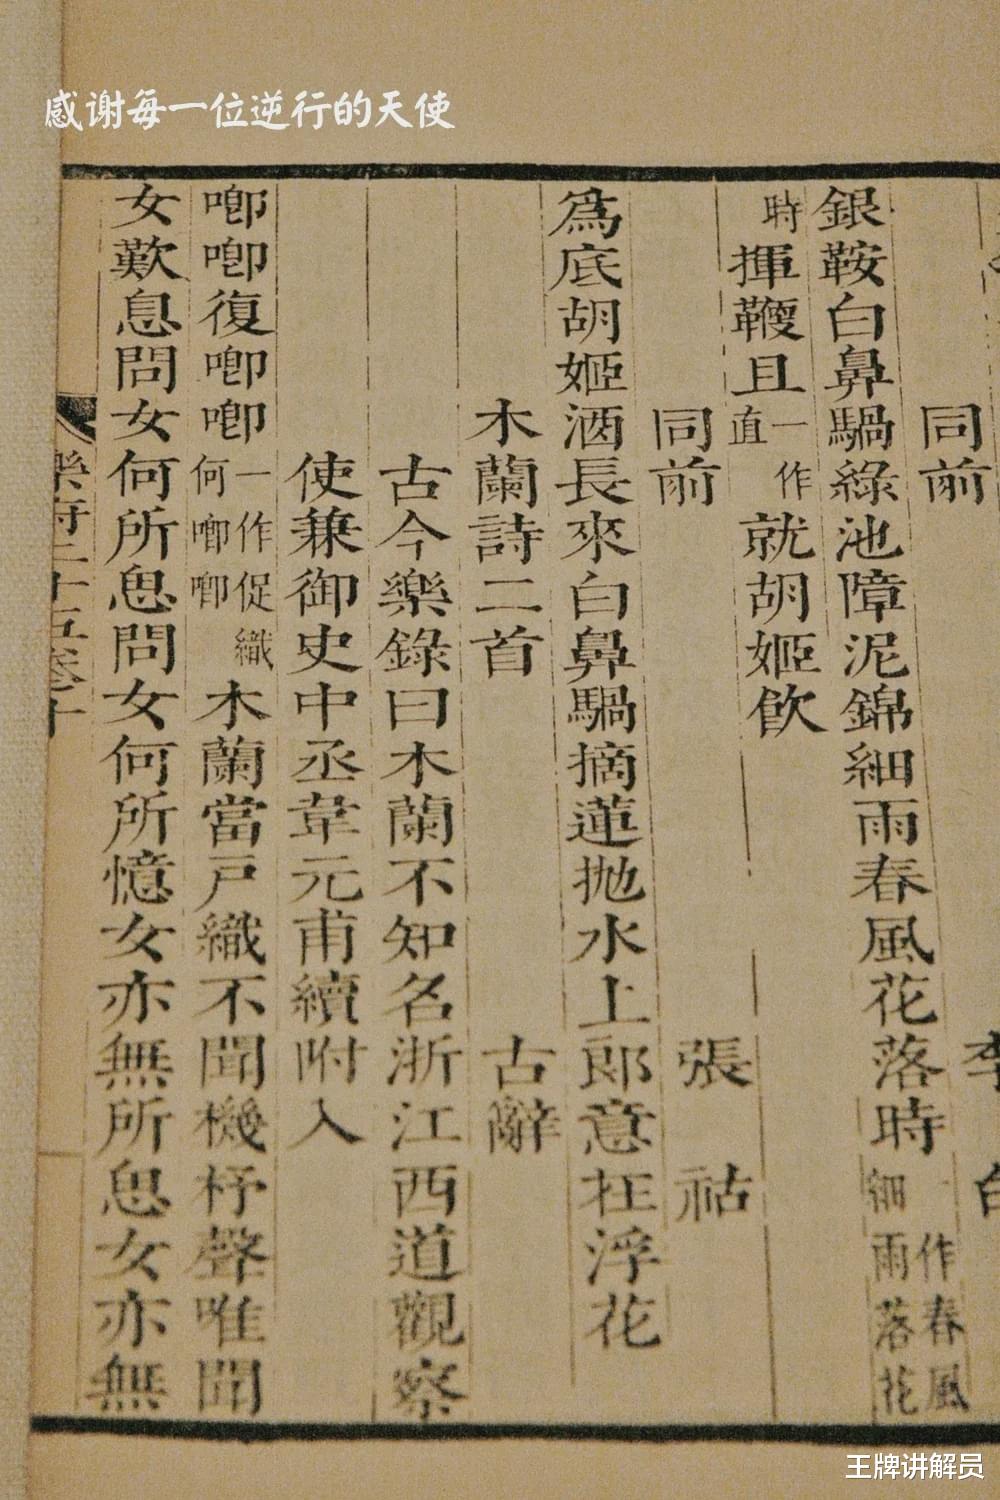 感谢每一位逆行的天使
同前 李白
銀鞍白鼻騧綠池障泥錦細雨春風花落時一作春風細雨落花
時揮鞭且一作直就胡姬飲
同前 張祜
爲底胡姬酒長來白鼻騧摘蓮抛水上郎意在浮花
木蘭詩二首 古辭
古今樂錄曰木蘭不知名浙江西道觀察
使兼御史中丞韋元甫續附入
唧唧復唧唧一作促織何唧唧木蘭當戸織不聞機杼聲唯聞
女歎息問女何所思問女何所憶女亦無所思女亦無
樂府二十五卷十
王牌讲解员